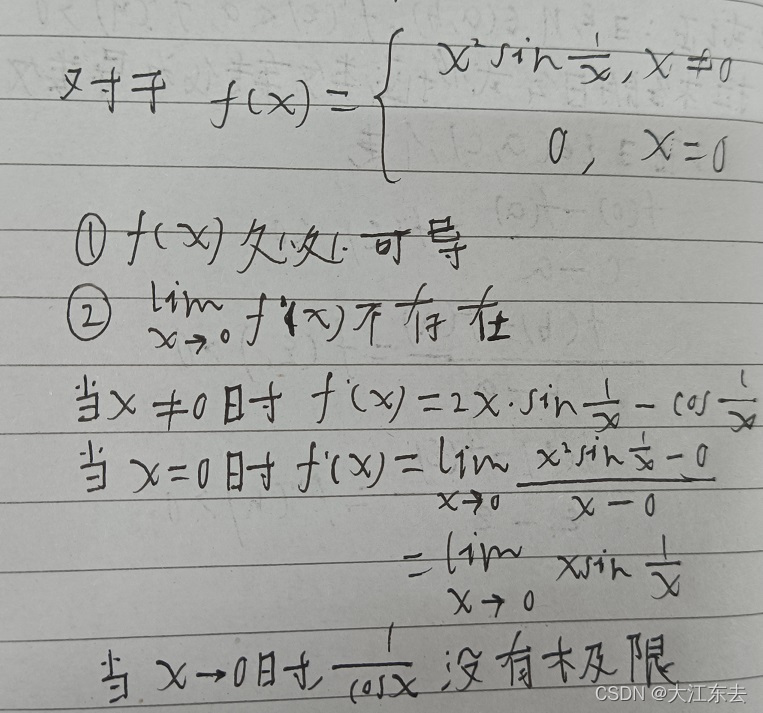 对于 f(x) = { x² sin 1/x, x ≠ 0
0, x = 0
① f(x) 处处可导
② lim x→0 f'(x) 不存在
当 x ≠ 0 时 f'(x) = 2x · sin 1/x - cos 1/x
当 x = 0 时 f'(x) = lim x→0 (x² sin 1/x - 0)/(x - 0)
= lim x→0 x sin 1/x
当 x → 0 时, 1/cos x 没有极限
CSDN @大江东去